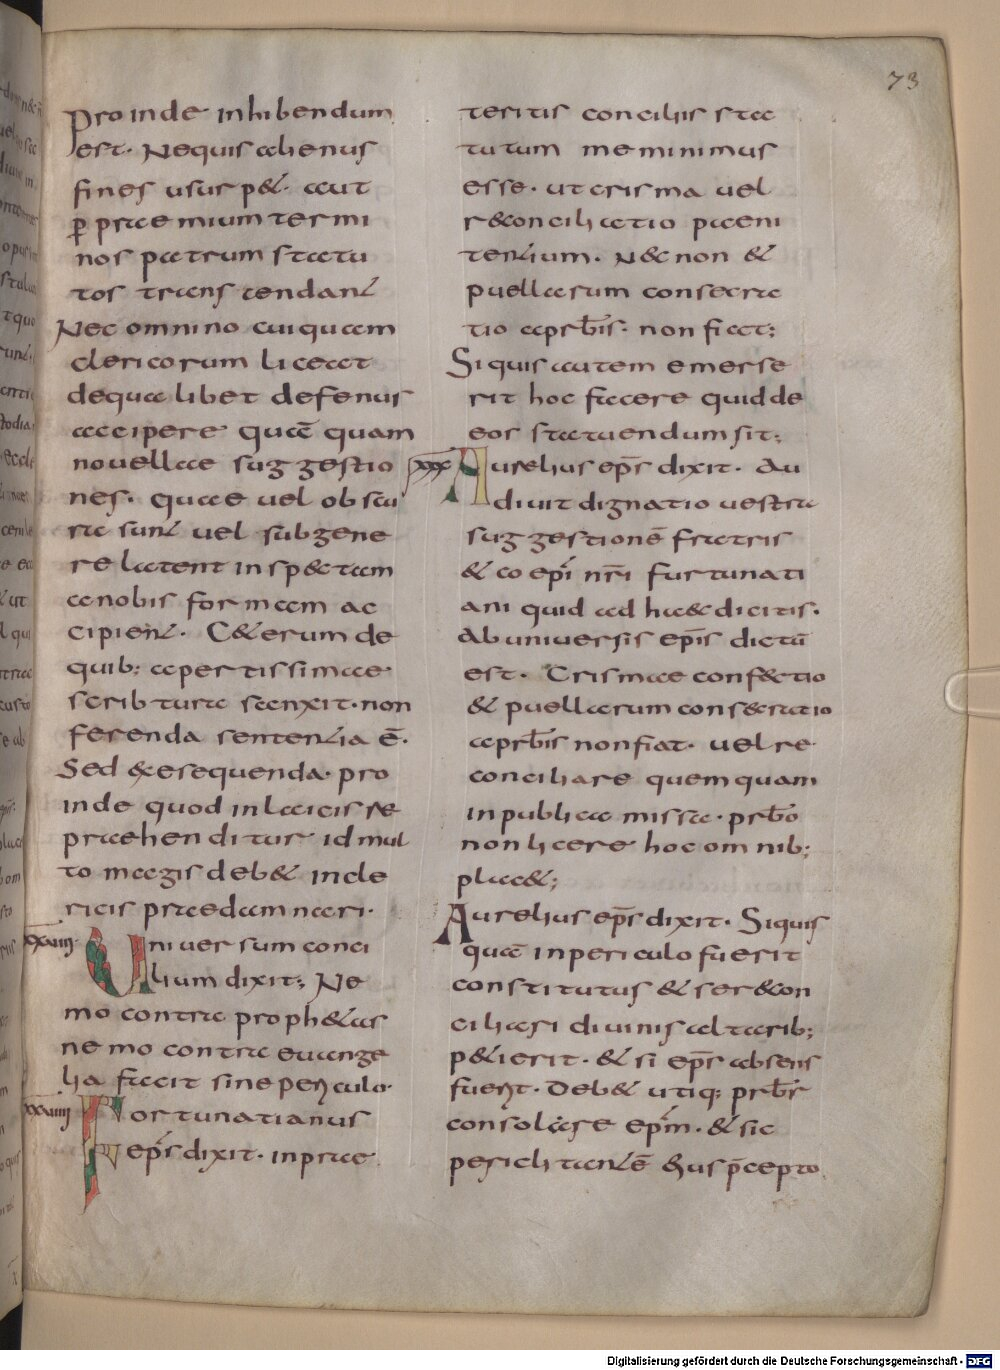 73
Proinde inhibendum
est. Nequis alienus
fines usurp&. aut
ꝑ praemium termi
nos patrum statu
tos transcendant
Nec omnino cuiquam
clericorum liceat
dequalibet defenus
accipere quaē quam
nouellae suggestio
nes. quae uel obscu
rae sunt uel subgene
re latent inspectaem
anobis formam ac
cipient. C&erum de
quib; apertissimae
scribturae sanxit. non
ferenda sententia ē.
Sed exsequenda. pro
inde quod inlaicis re
praehenditur id mul
to magis deb& incle
ricis praedamnari.
xxuiii
Uniuersum conci
lium dixit; Ne
mo contra proph&as
nemo contra euange
lia facit sine periculo.
xxuiiii
Fortunatianus
eps̄ dixit. inprae
teritis conciliis sta
tutum meminimus
esse. ut crisma uel
r&conciliatio paeni
tentium. N&c non &
puellarum consecra
tio apr̄bis. non fiat;
Siquis autem emerse
rit hoc facere quidde
eos statuendum sit;
xxx
Aurelius eps̄ dixit. Au
diuit dignatio uestra
suggestionē fratris
& coepī nr̄i furtunati
ani quid ad haec dicitis.
Abuniuersis epīs dictū
est. Crismae confectio
& puellarum consecratio
apr̄bis nonfiat. uel re
conciliare quemquam
inpublicae missa. pr̄bo
non licere hoc omnib;
plac&;
Aurelius eps̄ dixit. Siquis
quaē inpericulo fuerit
constitutus & ser&con
ciliari diuinis altarib;
p&ierit. & si eps̄ absens
fuerit. Deb& utiq; pr̄br
consolare epm̄. & sic
periclitantē eius p̄cepto
Digitalisierung gefördert durch die Deutsche Forschungsgemeinschaft - DFG